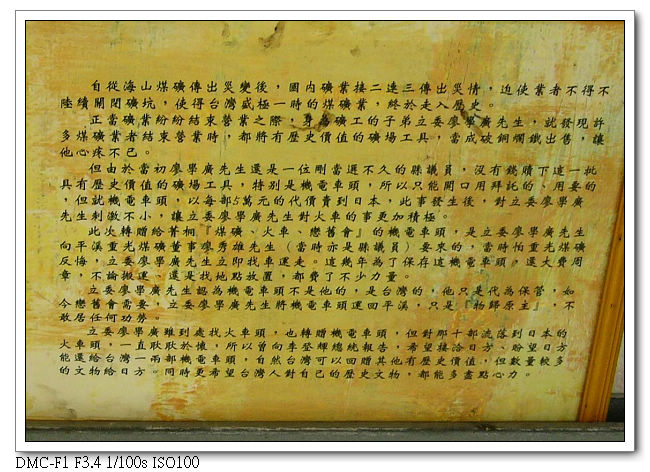 自從海山煤礦傳出災變後，國內礦業接二連三傳出災情，迫使業者不得不
陸續關閉礦坑，使得台灣盛極一時的煤礦業，終於走入歷史。
正當礦業紛紛結束營業之際，身為礦工的子弟立委廖學廣先生，就發現許
多煤礦業者結束營業時，都將有歷史價值的礦場工具，當成破銅爛鐵出售，讓
他心疼不已。
但由於當初廖學廣先生還是一位剛當選不久的縣議員，沒有錢購下這一批
具有歷史價值的礦場工具，特別是機電車頭，所以只能開口用拜託的、用要的
，但就機電車頭，以每部5萬元的代價賣到日本，此事發生後，對立委廖學廣
先生刺激不小，讓立委廖學廣先生對火車的事更加積極。
此次轉贈給菁桐『煤礦、火車、懸舊會』的機電車頭，是立委廖學廣先生
向平溪重光煤礦董事廖秀雄先生（當時亦是縣議員）要來的，當時怕重光煤礦
反悔，立委廖學廣先生立即找車運走。這幾年為了保存這機電車頭，還大費周
章，不論搬運、還是找地點放置，都費了不少力量。
立委廖學廣先生認為機電車頭不是他的，是台灣的，他只是代為保管，如
今懸舊會需要，立委廖學廣先生將機電車頭運回平溪，只是『物歸原主』，不
敢居任何功勞。
立委廖學廣雖到處找火車頭，也轉贈機電車頭，但對那十部流落到日本的
火車頭，一直耿耿於懷，所以曾向李登輝總統報告，希望接洽日方、盼望日方
能還給台灣一兩部機電車頭，自然台灣可以回贈其他有歷史價值，但數量較多
的文物給日方。同時更希望台灣人對自己的歷史文物，都能多盡點心力。
DMC-F1 F3.4 1/100s ISO100